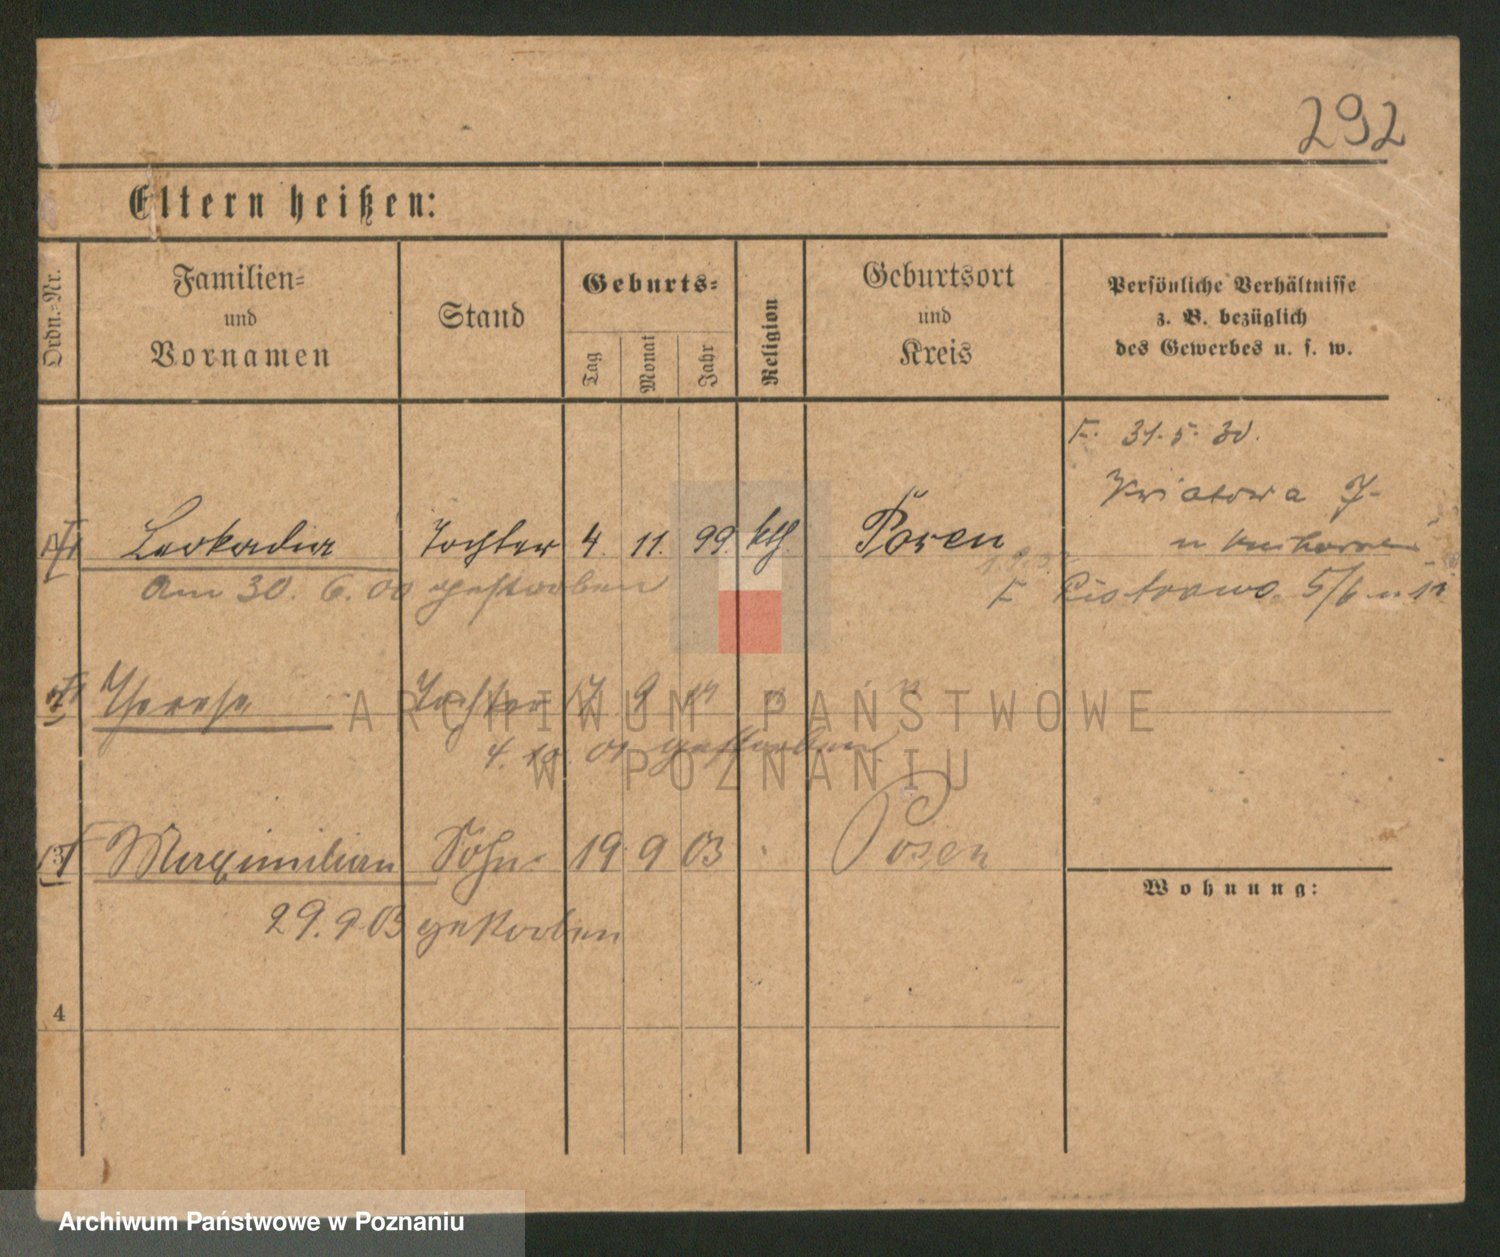 292
Eltern heißen:
Ordn.-Nr.
Familien-
und
Vornamen
Stand
Geburts-
Tag
Monat
Jahr
Religion
Geburtsort
und
Kreis
Persönliche Verhältnisse
z. B. bezüglich
des Gewerbes u. s. w.
31. 5. 30.
1 Leokadia Tochter 4. 11. 99. kth. Posen
Am 30. 6. 00 gestorben
5/6
2 Therese Tochter 9 "
4. 10. 01 gestorben
3 Maximilian Sohn 19 9 03 Posen
29. 9. 03 gestorben
Wohnung:
4
ARCHIWUM PAŃSTWOWE
W POZNANIU
Archiwum Państwowe w Poznaniu